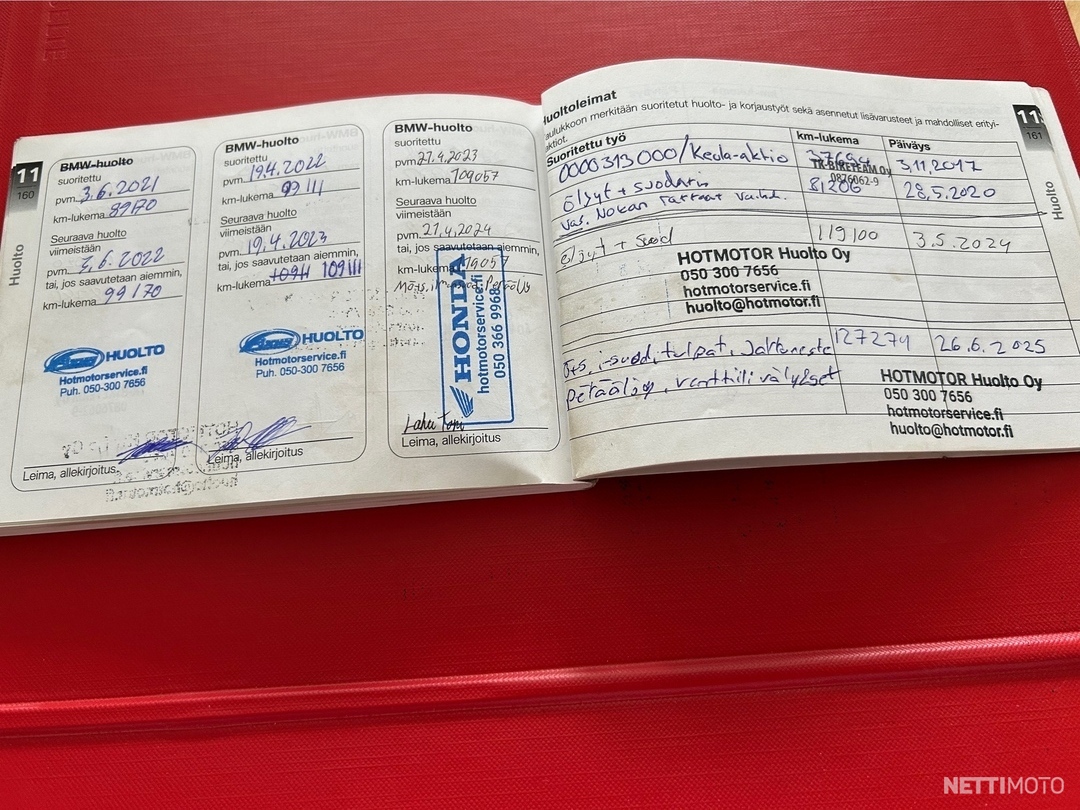 11
160
Huolto
BMW-huolto
suoritettu
pvm. 3.6.2021
km-lukema 89170
Seuraava huolto
viimeistään
pvm. 3.6.2022
tai, jos saavutetaan aiemmin,
km-lukema 99170
HUOLTO
Hotmotorservice.fi
Puh. 050-300 7656
Leima, allekirjoitus
BMW-huolto
suoritettu
pvm. 19.4.2022
km-lukema 99111
Seuraava huolto
viimeistään
pvm. 19.4.2023
tai, jos saavutetaan aiemmin,
km-lukema 109111
HUOLTO
Hotmotorservice.fi
Puh. 050-300 7656
Leima, allekirjoitus
BMW-huolto
suoritettu
pvm 27.4.2023
km-lukema 109057
Seuraava huolto
viimeistään
pvm. 27.4.2024
tai, jos saavutetaan aiemmin,
km-lukema
HONDA
hotmotorservice.fi
050 366 9968
Leima, allekirjoitus
Huoltoleimat
aulukkoon merkitään suoritetut huolto- ja korjaustyöt sekä asennetut lisävarusteet ja mahdolliset erityi-
aktiot.
Suoritettu työ km-lukema Päiväys
0000313000/Keula-aktio 37694 3.11.2017
TR-BIKETEAM Oy
0876062-9
öljyt + suodatin 81206 28.5.2020
vas. Nokan rattaat vaihd.
öljyt + suod 119100 3.5.2024
HOTMOTOR Huolto Oy
050 300 7656
hotmotorservice.fi
huolto@hotmotor.fi
ö+s, i-suod, tulpat, Jakoneste 127274 26.6.2025
Perääöljy, venttiilivälykset
HOTMOTOR Huolto Oy
050 300 7656
hotmotorservice.fi
huolto@hotmotor.fi
11
161
Huolto
NETTIMOTO